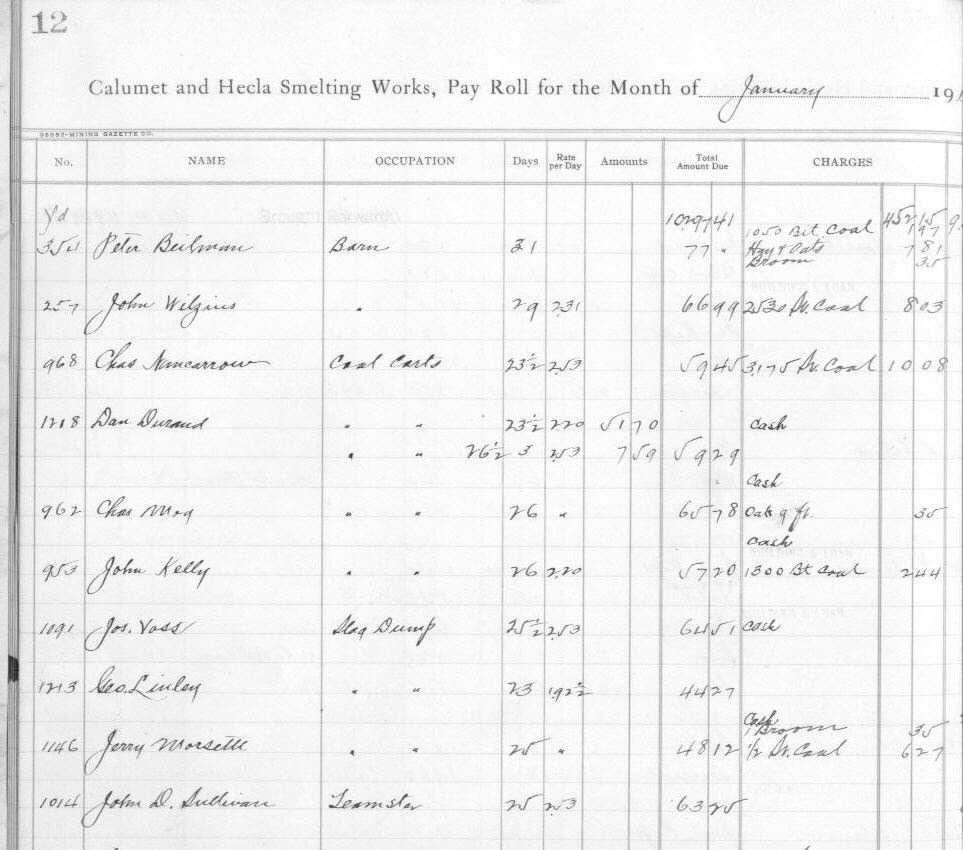 12
Calumet and Hecla Smelting Works, Pay Roll for the Month of January 191
38352-MINING GAZETTE CO.
No. NAME OCCUPATION Days Rate per Day Amounts Total Amount Due CHARGES
Yd 1029741 45215
1050 Bit. Coal 197
354 Peter Beilman Barn 31 77 " Hay & Oats 781
Broom 35
257 John Wilgius " 29 2.31 6699 2530 St. Coal 803
968 Chas Nancarrow Coal Carts 23½ 2.53 5945 3,175 St. Coal 1008
1218 Dan Durand " " 23½ 2.20 5170 Cash
" " 26½ 3 2.53 759 5929
Cash
962 Chas Moq " " 26 " 6578 Oats 35
Cash
953 John Kelly " " 26 2.20 5720 1300 Bt Coal 244
1091 Jos. Voss Slag Dump 25½ 2.53 6451 Cash
1213 Geo. Linley " " 23 1.92½ 4427
Cash
1 Broom 35
1146 Jerry Morsette " " 25 " 4812 1/2 St. Coal 627
1014 John D. Sullivan Teamster 25 2.53 6325